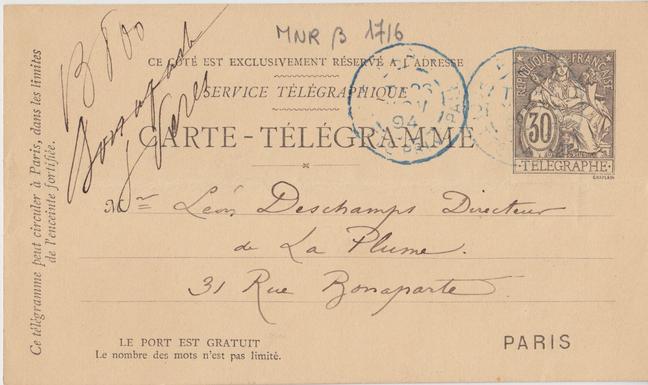 MNR β 1716
CE CÔTÉ EST EXCLUSIVEMENT RÉSERVÉ A L'ADRESSE
SERVICE TÉLÉGRAPHIQUE
CARTE-TÉLÉGRAMME
RÉPUBLIQUE FRANÇAISE
30
TÉLÉGRAPHE
CHAPLAIN
94
PARIS
Mr Léon Deschamps Directeur
de La Plume.
31 Rue Bonaparte.
PARIS
LE PORT EST GRATUIT
Le nombre des mots n'est pas limité.
Ce télégramme peut circuler à Paris, dans les limites
de l'enceinte fortifiée.